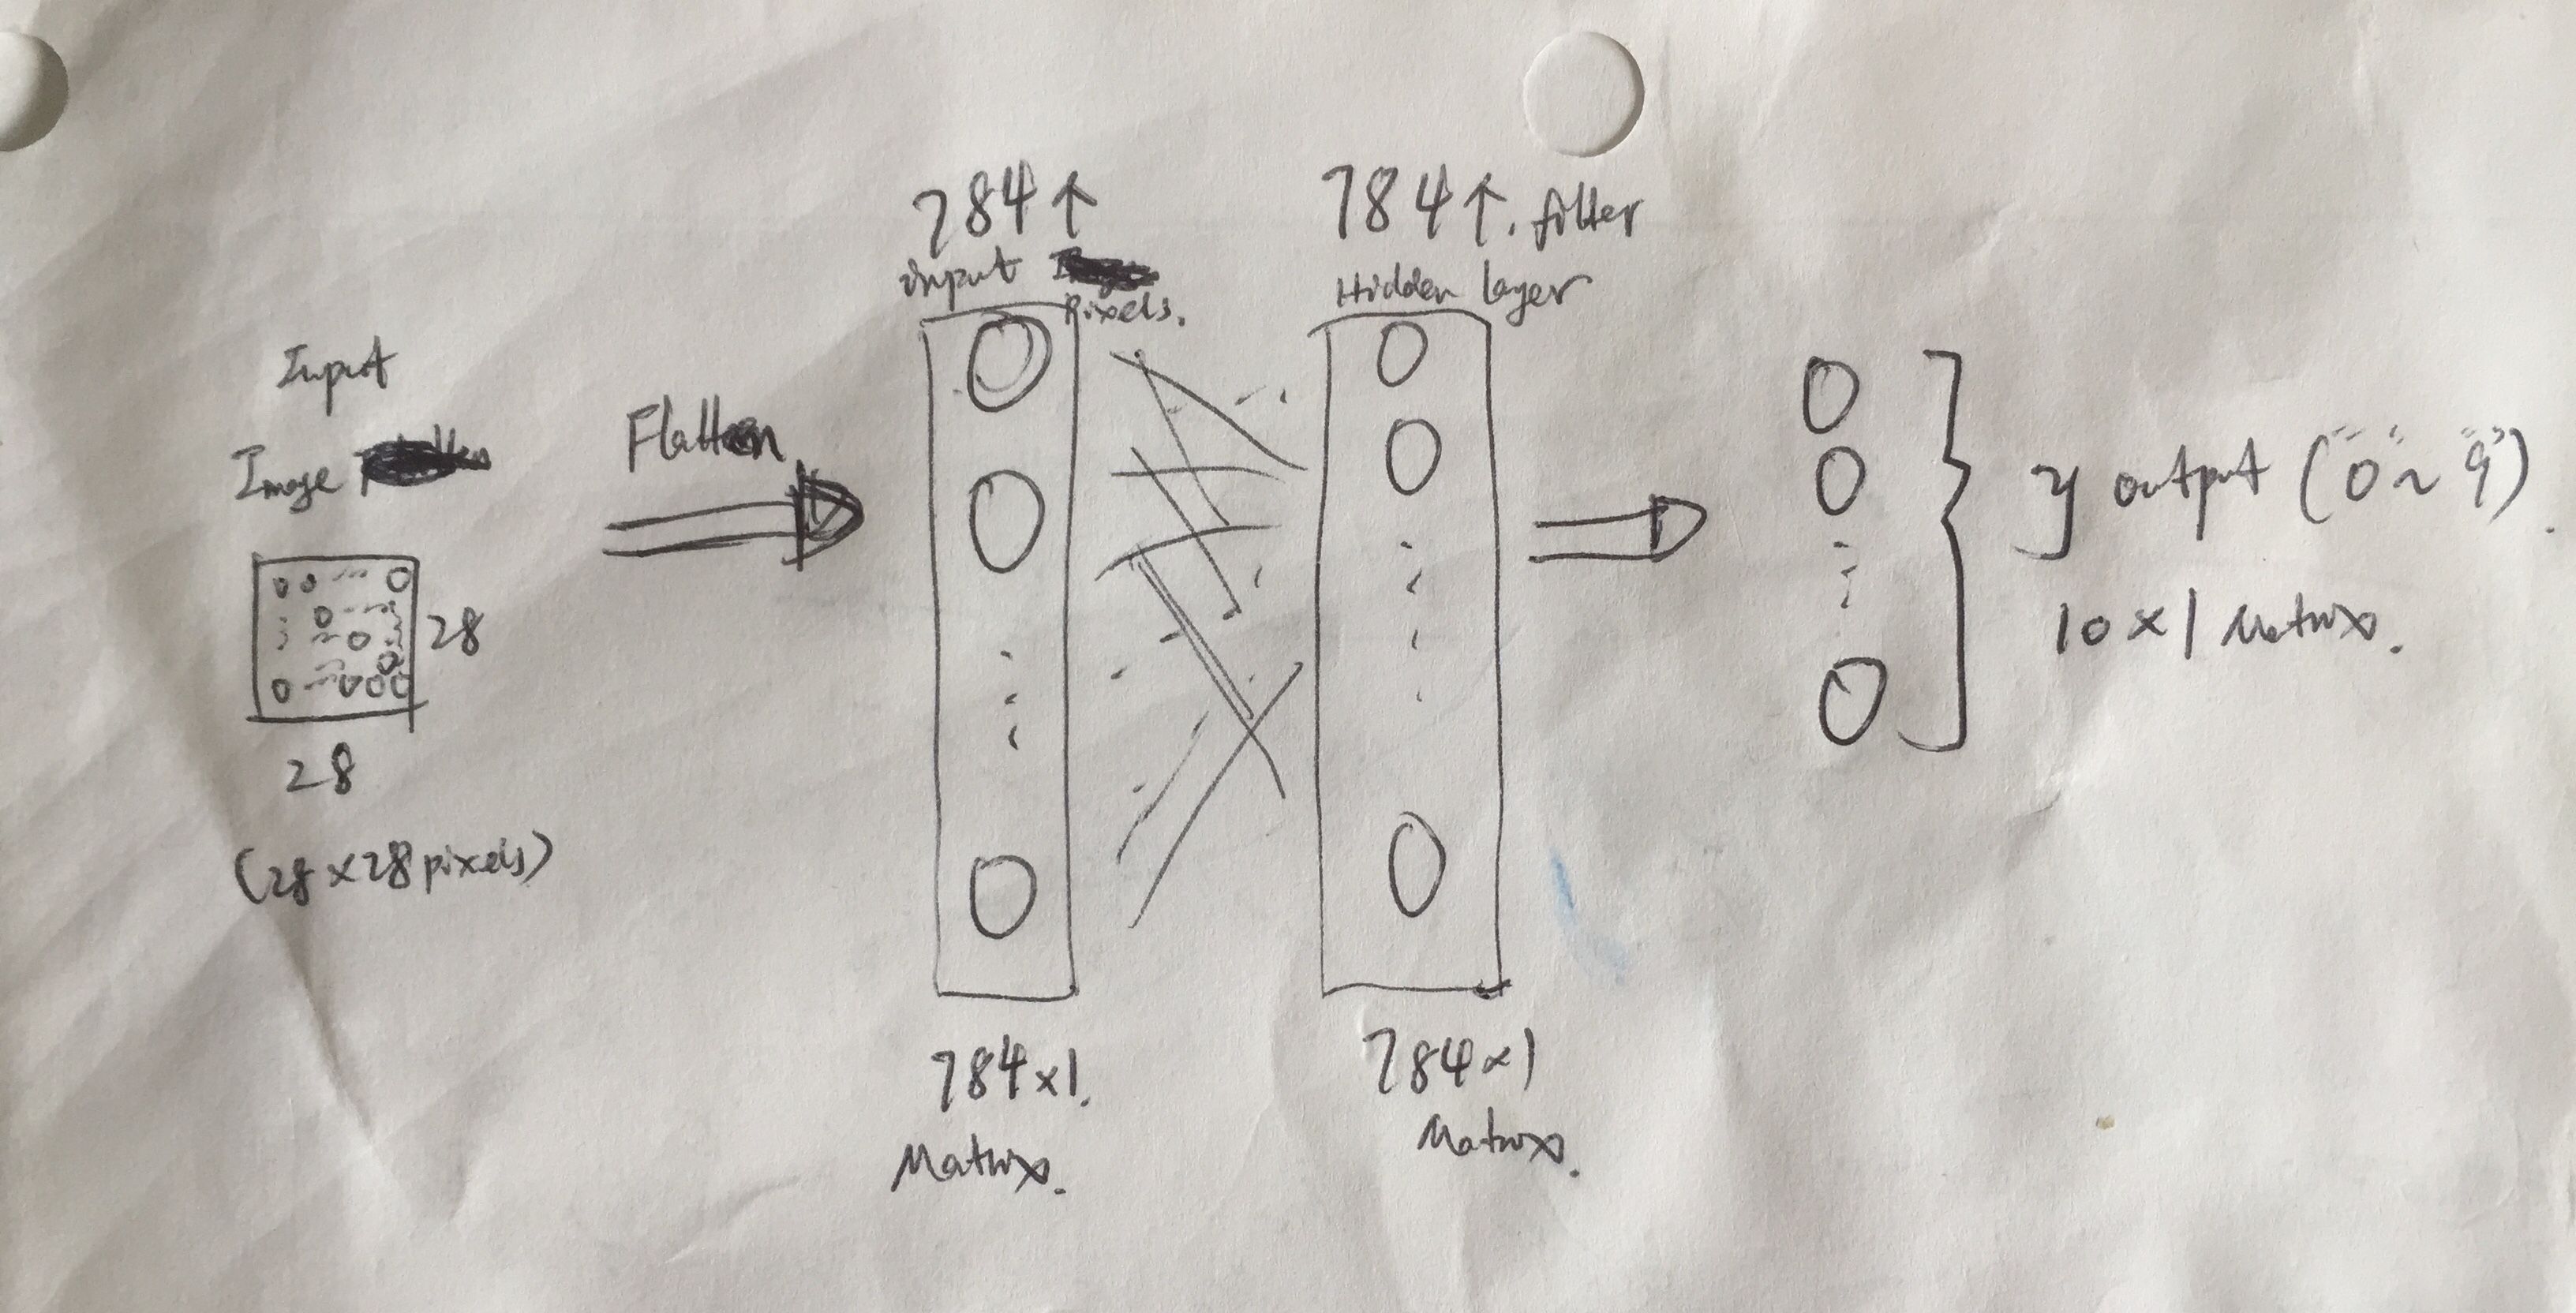 Input
Image
28
28
(28×28 pixels)
Flatten
784↑
input
pixels.
784×1.
Matrix.
784↑. filter
Hidden layer
784×1
Matrix.
y output ("0"~"9").
10×1 Matrix.